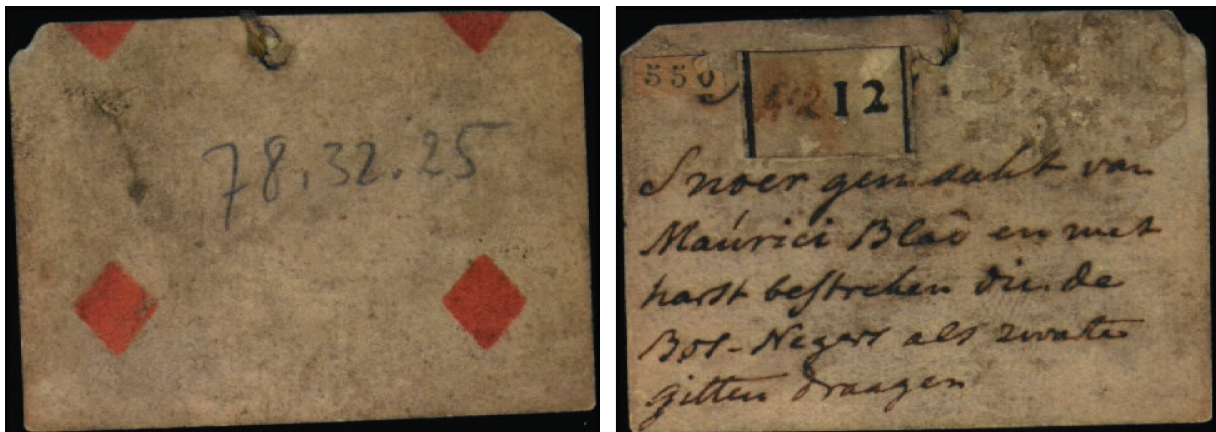 78.32.25
550
N:2 12
Snoer gemaakt van
Maúrici Blad en met
harst bestreken die de
Bos-Negers als zwarte
gitten draagen